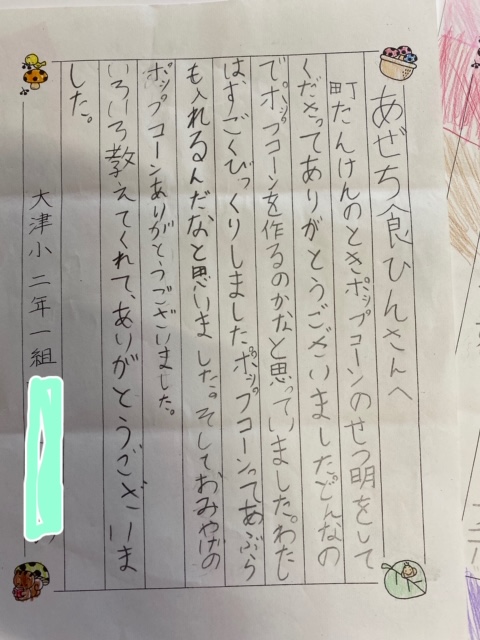 あぜち食ひんさんへ
町たんけんのときポップコーンのせつ明をして
くださってありがとうございました。どんなの
でポップコーンを作るのかなと思っていました。わたし
はすごくびっくりしました。ポップコーンってあぶら
も入れるんだなと思いました。そしておみやげの
ポップコーンありがとうございました。
いろいろ教えてくれて、ありがとうございま
した。
大津小 二年一組